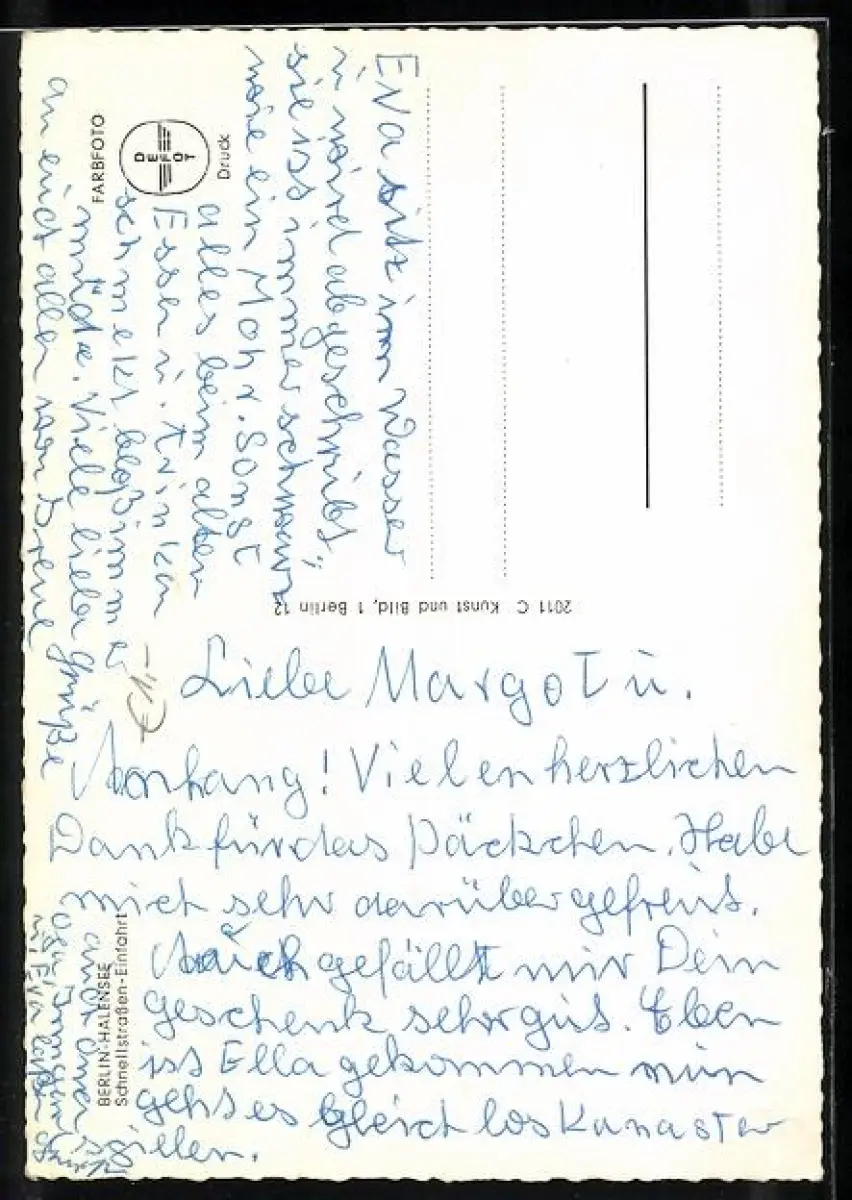 Liebe Margot u.
Anhang! Vielen herzlichen
Dank für das Päckchen. Habe
mich sehr darüber gefreut.
Auch gefällt mir Dein
Geschenk sehr gut. Eben
ist Ella gekommen nun
gehts es gleich los Kanaster
spielen.
Eva sitz im Wasser
u. wird abgeschrubt
sie ist immer schwarz
wie ein Mohr. Sonst
alles beim alten
Essen u. Trinken
schmekt bloß immer
müde. Viele liebe Grüße
an euch allen von
FARBFOTO
DEFOT
Druck
2011 C Kunst und Bild, 1 Berlin 12
BERLIN-HALENSEE
Schnellstraßen-Einfahrt
€ 1,-